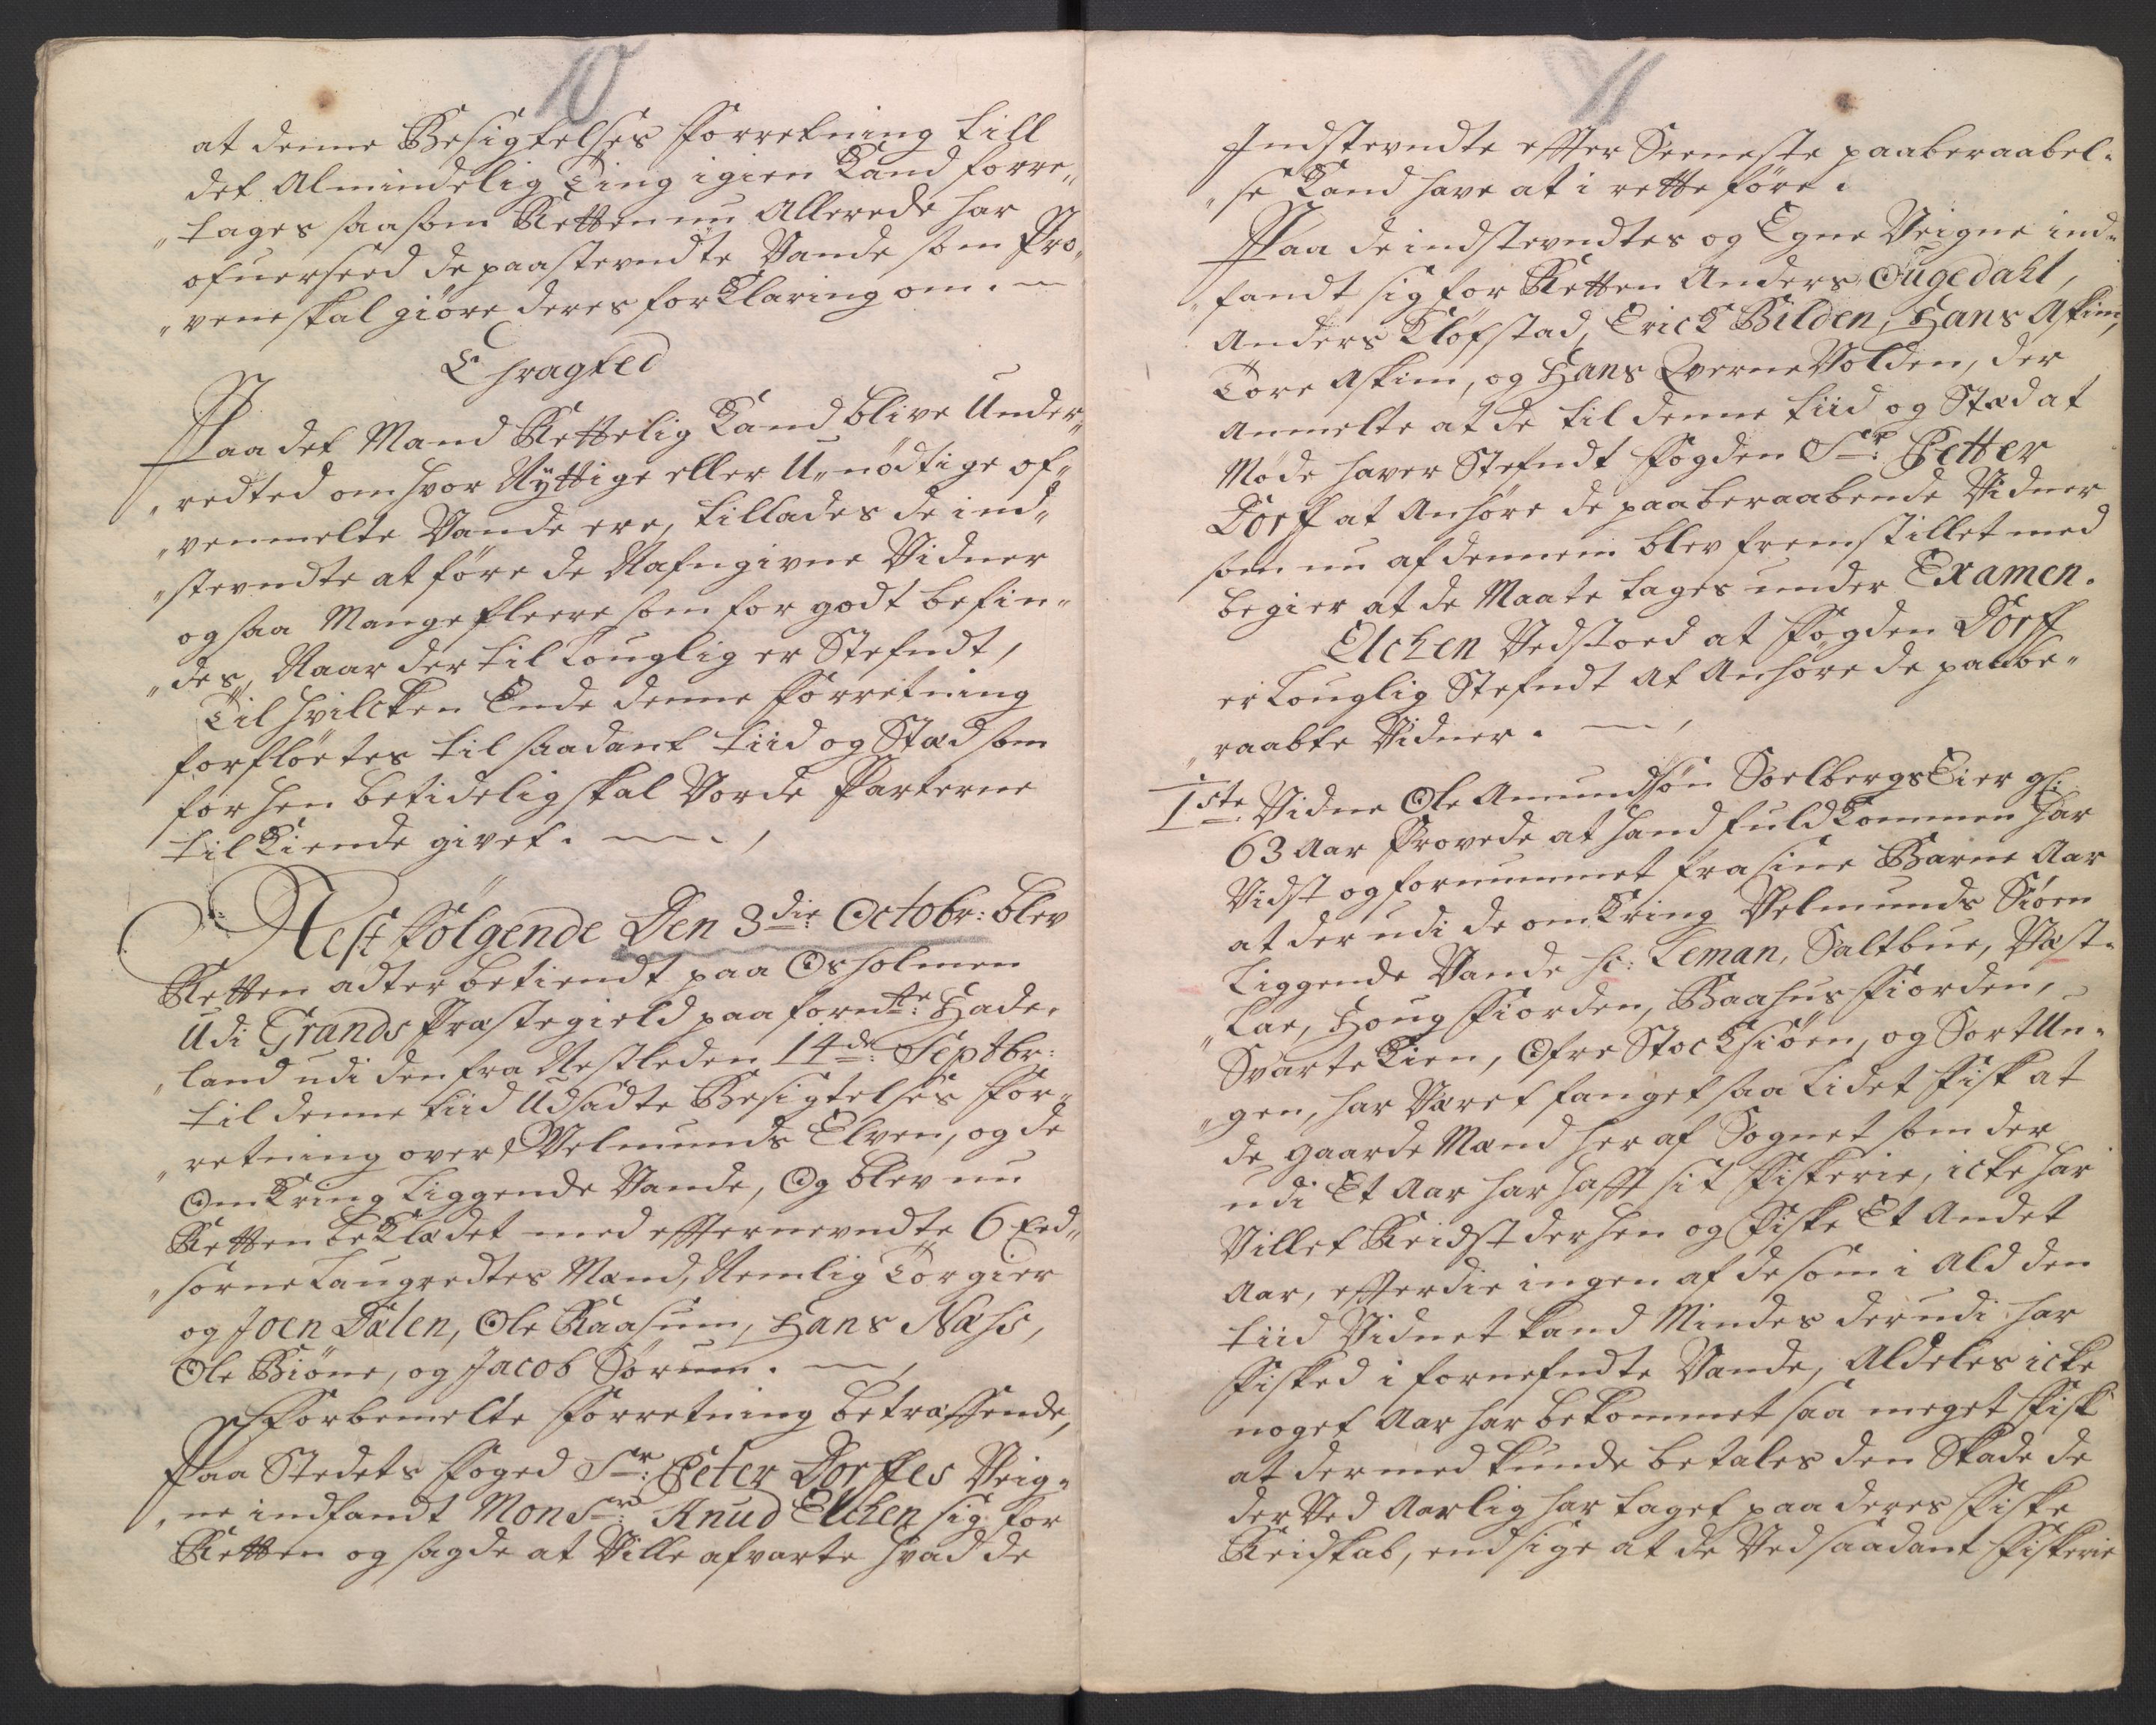 10
at denne Besigtelses Forretning till
det Almindelig Ting igien Kand forre„
„tages saasom Retten nu Allerede har
ofuerseed de paastevndte Vande som Pro„
„vene skal giøre deres forKlaring om. —
Eragted
Paa det Mand Rettelig Kand blive Under„
„redted om hvor Nyttige eller U„nödtige of„
„venmelte Vande ere, tillades de ind„
„stevndte at före de Nafngivne Vidner
og saa Mange fleere som for godt befin„
„des, Naar der til Louglig er Stefndt,
Til hvilcken Ende denne Forretning
forfløetes til saadant tiid og Stæd som
forhen betidelig skal Vorde Parterne
tilKiende givet. —
Nest Følgende Den 3die Octobr: blev
Retten adter betiendt paa Osholmen
Udi Grands Præstegield paa fornte: Hade„
„land udi den fra Nestleden 14de: Septbr:
til denne tiid Udsadte Besigtelses For„
„retning over Velmunds Elven, og de
OmKring Liggende Vande, Og blev nu
Retten beKlædet med effternevndte 6 Eed„
„sorne Laugredtes Mænd, Nemlig Torgier
og Joen Dælen, Ole Raasum, Hans Næhs,
Ole Biöne, og Jacob Sörum. —
Forbemelte Forretning betræffende,
Paa Stedets Foged Sr: Peter Dorffes Veig„
„ne indfandt Monsr: Knud Elchen sig for
Retten og sagde at Ville afvarte hvad de
11
Indstevndte effter Seeneste paaberaabel„
„se Kand have at i rette före.
Paa de indstevndtes og Egne Veigne ind„
„fandt sig for Retten Anders Ougedahl,
Anders Klöfstad, Erick Bilden, Hans Askim,
Tore Askim, og Hans QverneVolden, der
Anmelte at de til denne tiid og Stæd at
Møde haver Stefndt Fogden Sr: Petter
Dorff at Anhöre de paaberaabende Vidner
som nu af dennem blev fremstillet med
begier at de Maate tages under Examen.
Elchen Vedstoed at Fogden Dorff
er Louglig Stefndt at Anhöre de paabe„
„raabte Vidner. —
1ste: Vidne Ole Amundsön Soelbergs Eier gl:
63 Aar Provede at hand fuldKommen har
Vidst og fornummet fra sine Barne Aar
at der udi de omKring Velmunds Siöen
Liggende Vande sc: Leman, Saltbue, Væst„
„Lae, Houg Fiorden, Baahus Fiorden,
SvarteKien, Ofre Stocksiöen, og SortUn„
„gen, har Været fanget saa Lidet Fisk at
de gaarde Mænd her af Sognet som der
udi Et Aar har hafft sit Fiskerie, icke har
Villet Reidst derhen og Fiske Et Andet
Aar, efterdie ingen af de som i Ald den
tiid Vidnet kand Mindes derudi har
Fisked i fornefndte Vande, Aldeles icke
noget Aar har bekommet saa meget Fisk
at dermed kunde betales den Skade de
der Ved Aarlig har taget paa deres Fiske
Reidskab, end sige at de Ved saadant Fiskerie